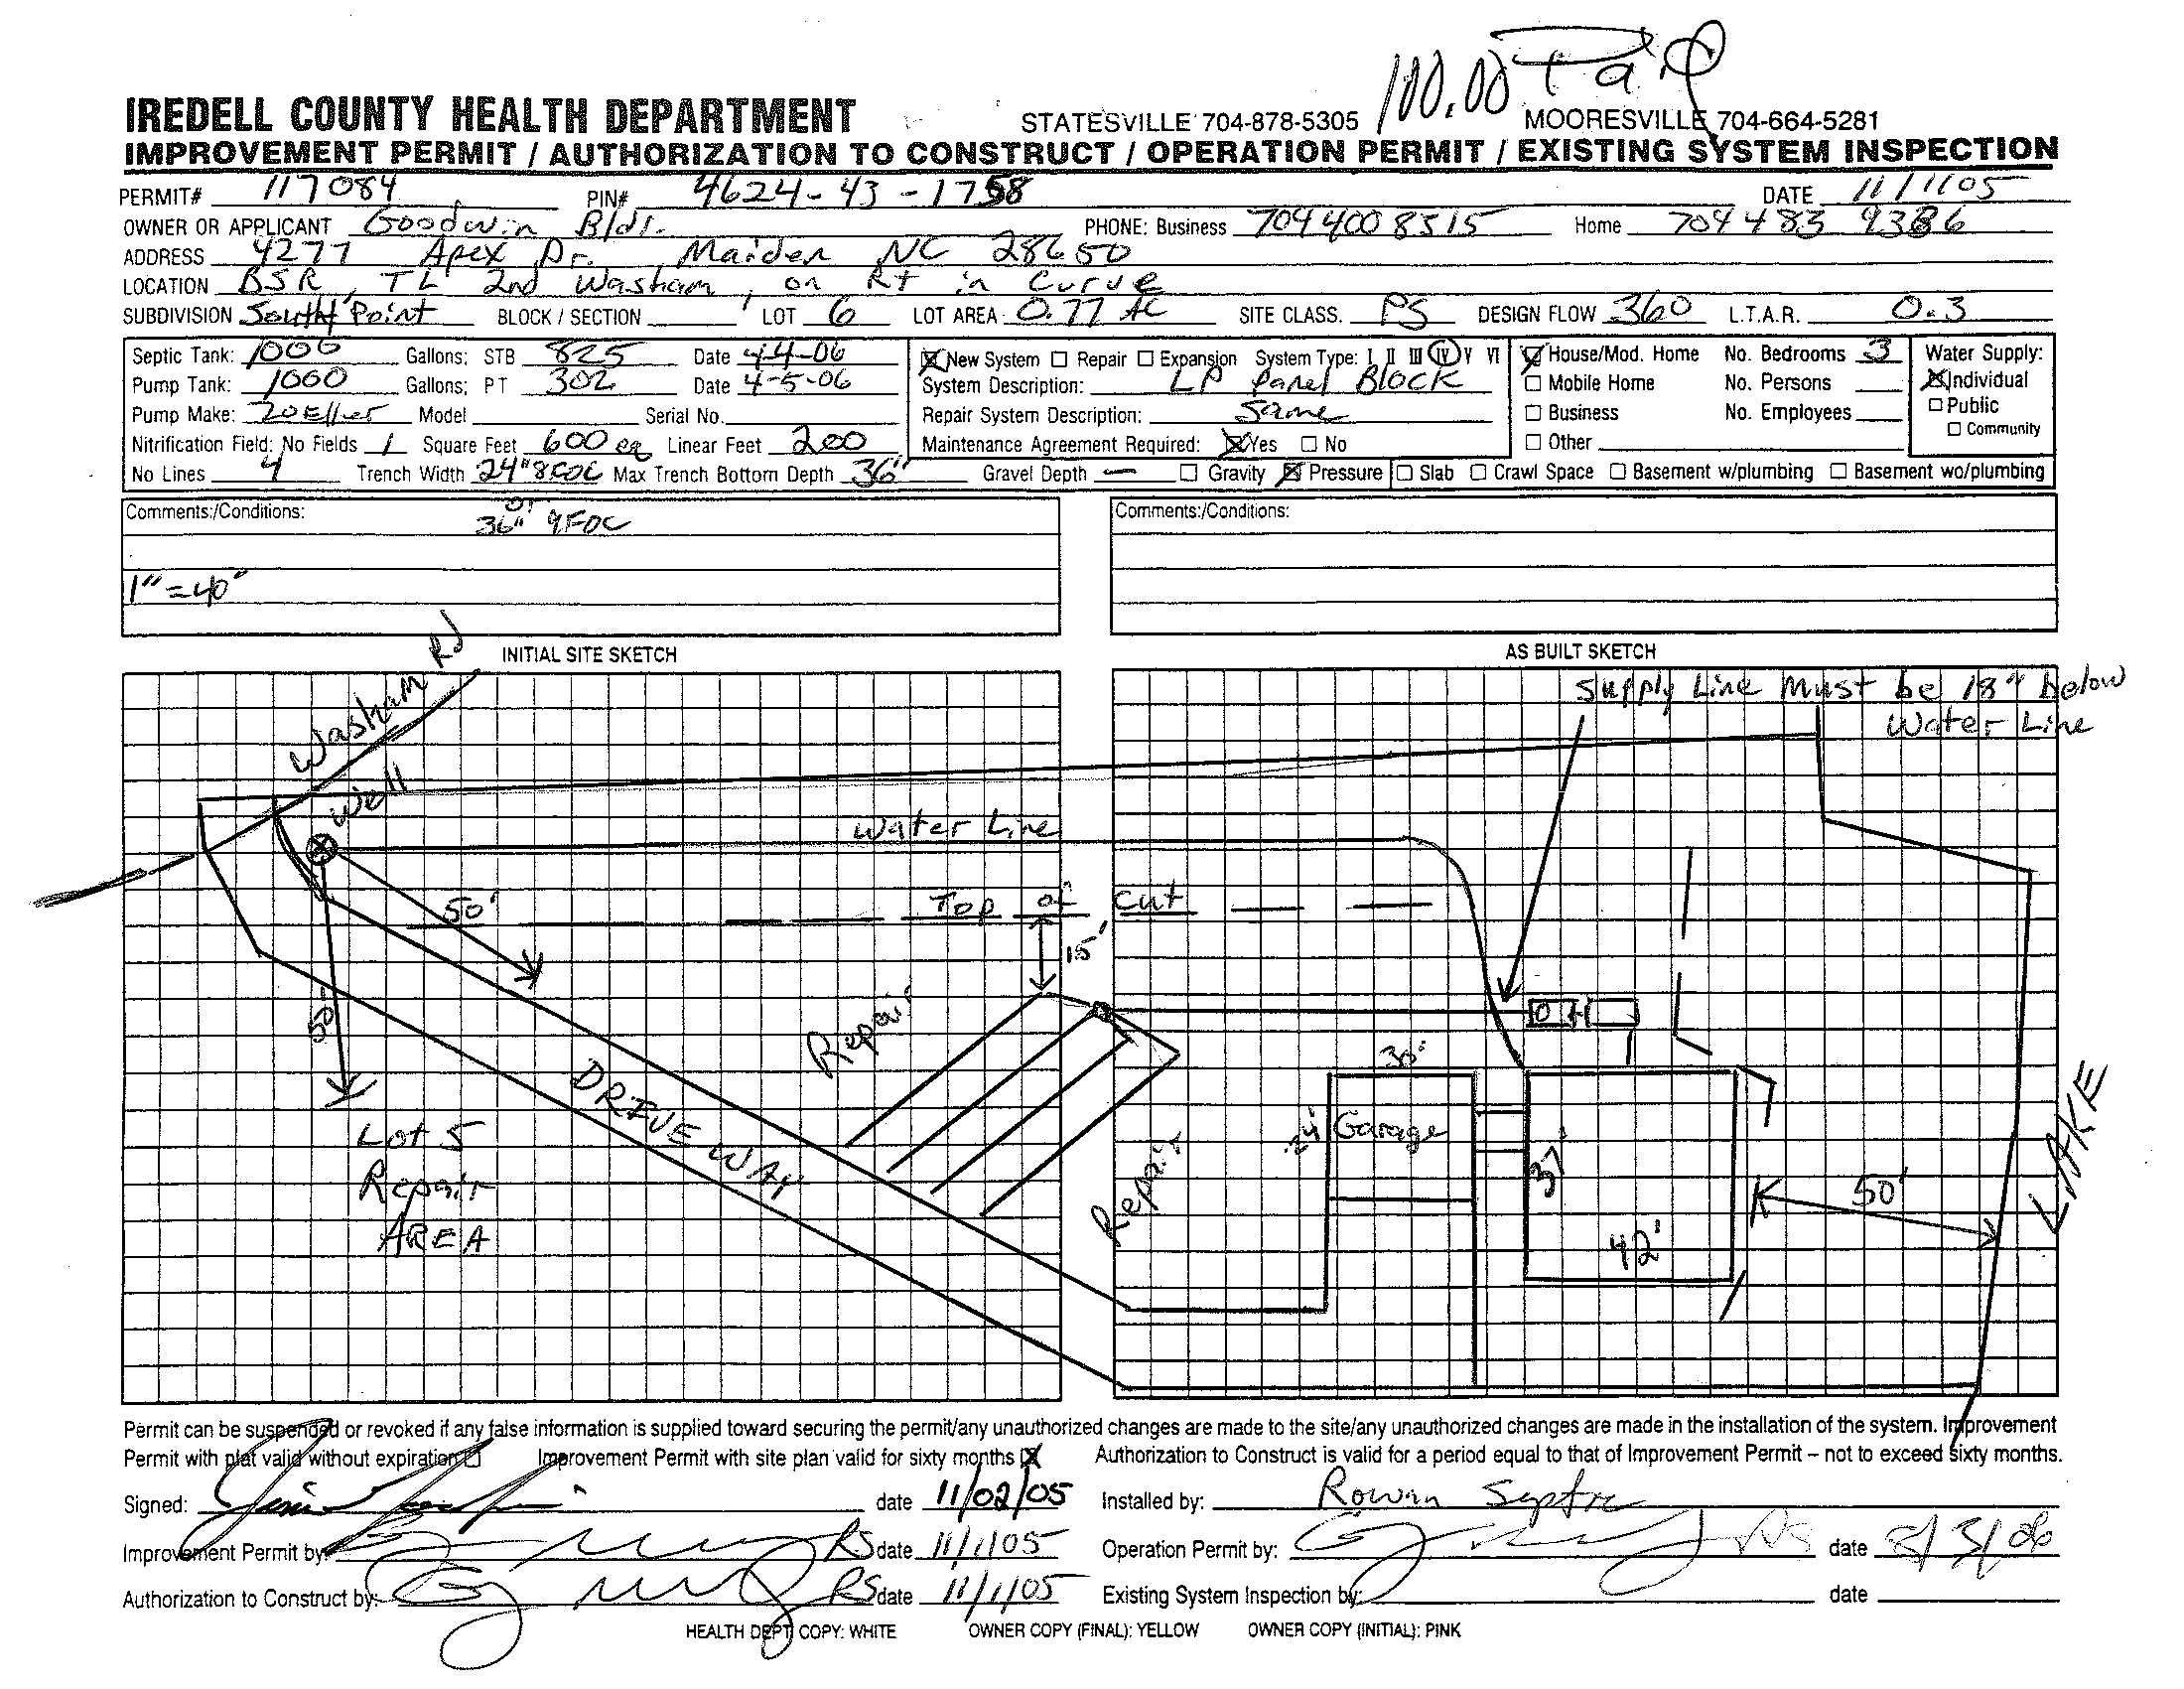 100.00 Paid
IREDELL COUNTY HEALTH DEPARTMENT STATESVILLE 704-878-5305 MOORESVILLE 704-664-5281
IMPROVEMENT PERMIT / AUTHORIZATION TO CONSTRUCT / OPERATION PERMIT / EXISTING SYSTEM INSPECTION
PERMIT# 117084 PIN# 4624-43-1758 DATE 11/1/05
OWNER OR APPLICANT Goodwin Bldr. PHONE: Business 704 400 8515 Home 704 483 9386
ADDRESS 4277 Apex Dr. Maiden NC 28650
LOCATION BSR, TL 2nd Washam, on Rt in Curve
SUBDIVISION South Point BLOCK / SECTION LOT 6 LOT AREA 0.77 AC SITE CLASS. PS DESIGN FLOW 360 L.T.A.R. 0.3
Septic Tank: 1000 Gallons: STB 825 Date 4-4-06 New System Repair Expansion System Type: I II III IV V VI House/Mod. Home No. Bedrooms 3 Water Supply:
Pump Tank: 1000 Gallons: PT 302 Date 4-5-06 System Description: LP Panel Block Mobile Home No. Persons Individual
Pump Make: Zoeller Model Serial No. Repair System Description: Same Business No. Employees Public
Nitrification Field: No Fields 1 Square Feet 600 eq Linear Feet 200 Maintenance Agreement Required: Yes No Other Community
No Lines 4 Trench Width 24" 8FOC Max Trench Bottom Depth 36" Gravel Depth — Gravity Pressure Slab Crawl Space Basement w/plumbing Basement wo/plumbing
Comments:/Conditions: or Comments:/Conditions:
36" 9FOC
1" = 40"
INITIAL SITE SKETCH AS BUILT SKETCH
Supply Line Must be 18" Below
Water Line
Washam Rd
Well
Water Line
50'
Top of Cut
15'
50'
Repair
30'
DRIVEWAY
Lot 5
Repair
AREA
Repair
24'
Garage
37'
42'
50'
LAKE
Permit can be suspended or revoked if any false information is supplied toward securing the permit/any unauthorized changes are made to the site/any unauthorized changes are made in the installation of the system. Improvement
Permit with plat valid without expiration Improvement Permit with site plan valid for sixty months Authorization to Construct is valid for a period equal to that of Improvement Permit – not to exceed sixty months.
Signed: date 11/02/05 Installed by: Rowan Septic
Improvement Permit by: RS date 11/1/05 Operation Permit by: RS date 8/3/06
Authorization to Construct by: RS date 11/1/05 Existing System Inspection by: date
HEALTH DEPT COPY: WHITE OWNER COPY (FINAL): YELLOW OWNER COPY (INITIAL): PINK